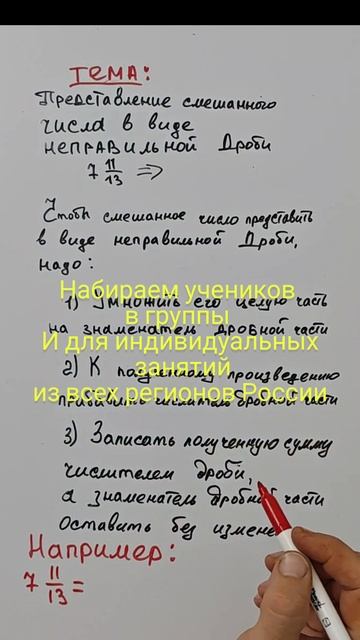 ТЕМА:
Представление смешанного
числа в виде
неправильной Дроби
7 11/13 =>
Чтобы смешанное число представить
в виде неправильной Дроби,
надо:
Набираем учеников
1) Умножить его целую часть
в группы
на знаменатель дробной части
И для индивидуальных
занятий
2) К полученному произведению
из всех регионов России
прибавить числитель дробной части
3) Записать полученную сумму
числителем дроби,
а знаменатель дробной части
оставить без измене
Например:
7 11/13 =